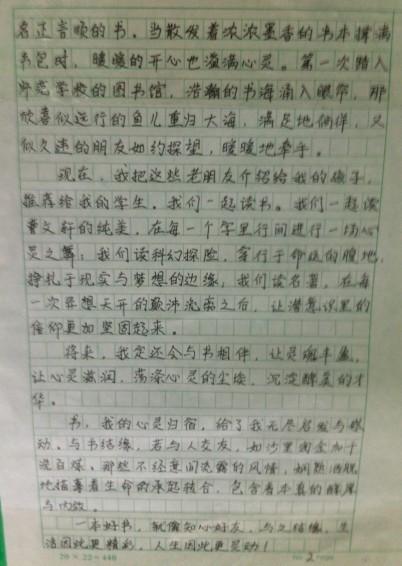 名正言顺的书，当散发着浓浓墨香的书本撑满
书包时，暖暖的开心也溢满心灵。第一次踏入
师范学校的图书馆，浩瀚的书海涌入眼帘，那
欣喜似远行的鱼儿重归大海，满足地徜徉，又
似久违的朋友如约探望，暖暖地牵手。
现在，我把这些老朋友介绍给我的孩子，
推荐给我的学生，我们一起读书。我们一起读
曹文轩的纯美，在每一个字里行间进行一场心
灵之舞；我们读科幻探险，穿行于神秘的腹地，
挣扎于现实与梦想的边缘；我们读名著，在每
一次异想天开的颠沛流离之后，让潜意识里的
信仰更加坚固起来。
将来，我定还会与书相伴，让灵魂丰盈，
让心灵滋润，荡涤心灵的尘埃，沉淀醇美的才
华。
书，我的心灵归宿，给了我无尽启发与感
动。与书结缘，若与人交友，如沙里淘金加千
淘百炼，那些不经意间流露的风情，娴熟洒脱
地描摹着生命的承起转合，包含着本真的醇厚
与内敛。
一本好书，就像知心好友，与之结缘，生
活因此更精彩，人生因此更灵动！
20 × 22 = 440
2